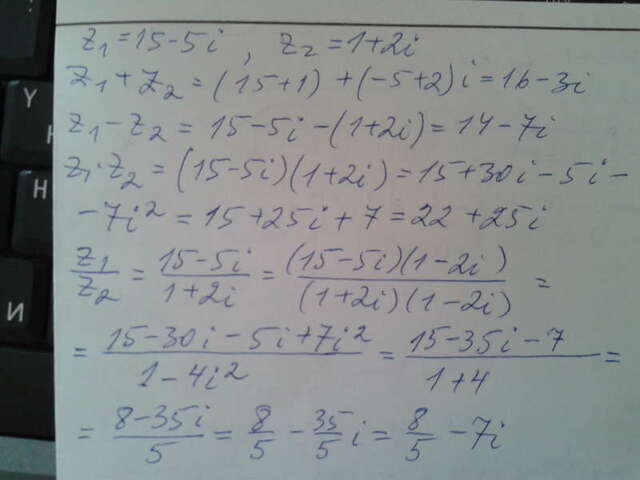 z₁=15-5i, z₂=1+2i
z₁+z₂=(15+1)+(-5+2)i=16-3i
z₁-z₂=15-5i-(1+2i)=14-7i
z₁·z₂=(15-5i)(1+2i)=15+30i-5i-
-7i²=15+25i+7=22+25i
z₁/z₂=(15-5i)/(1+2i)=((15-5i)(1-2i))/((1+2i)(1-2i))=
=(15-30i-5i+7i²)/(1-4i²)=(15-35i-7)/(1+4)=
=(8-35i)/5=8/5-35/5i=8/5-7i
Y
H
И